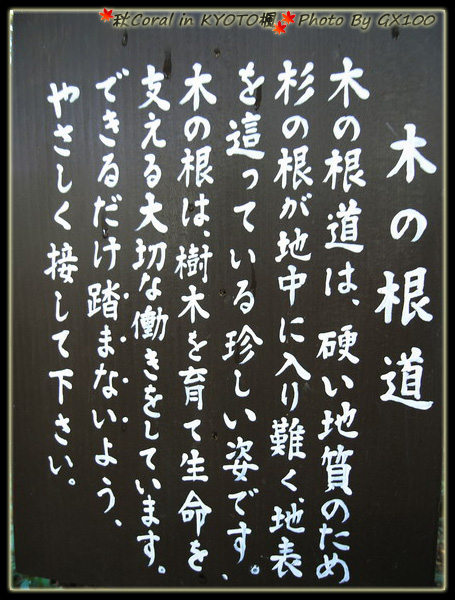 秋Coral in KYOTO楓 Photo By GX100
木の根道
木の根道は、硬い地質のため
杉の根が地中に入り難く、地表
を這っている珍しい姿です。
木の根は、樹木を育て生命を
支える大切な働きをしています。
できるだけ踏まないよう、
やさしく接して下さい。